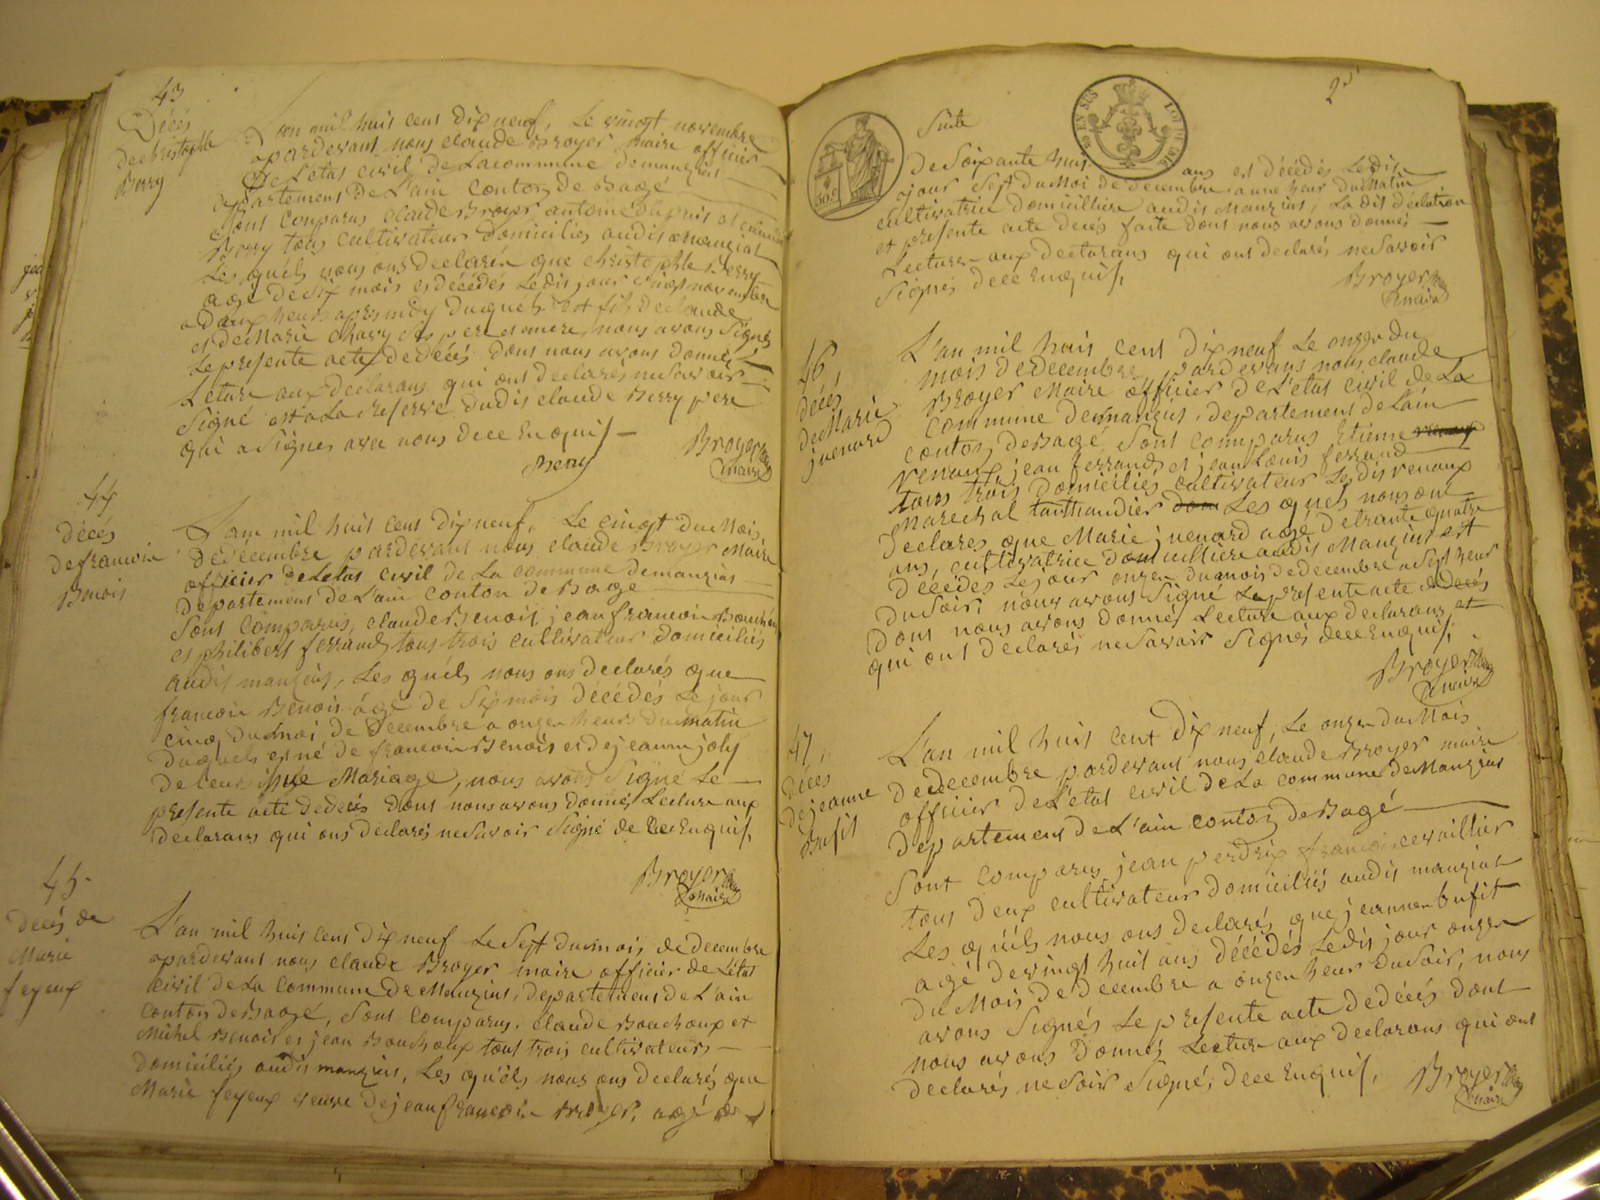 43
Décés
de christophle
Berry
L'an mil huit cent dix neuf, Le vingt novembre
pardevant nous claude Broyer maire officier
de L'etat civil de La commune de manziat
departement de L'ain conton de Bagé
Sont comparus claude Broyer antoine et
Berry tous cultivateur domiciliés audit manziat
Les quels nous ont declarés que christophle Berry
age de Six mois est décédés Ledit jour vingt novembre
a deux heurs apres midy duquel est fils de claude
et de Marie Chavy Ses pere et mere, nous avons Signés
Le presente acte de décés dont nous avons donné
Lecture aux declarans qui ont declarés ne Savoir
Signé et a La reserve dudit claude Berry pere
qui a Signés avec nous de ce Enquis
Berry
Broyer
maire
44
décés
de francois
Benois
L'an mil huit cent dix neuf, Le cinqt du Mois
de decembre pardevant nous claude Broyer Maire
officier de L'etat civil de La commune de manziat
departement de L'ain conton de Bagé
Sont comparus, claude Benoit, jean francois
et philibert ferrand tous trois cultivateur domiciliés
audit manziat, Les quels nous ont declarés que
francois Benois agé de Six mois décédés Le jour
cinq du moi de Decembre a onze heurs du matin
duquel est né de francois Benois et de jeanne joly
de Leur Mariage, nous avons Signé Le
presente acte de décés dont nous avons donné Lecture aux
declarans qui ont declarés ne Savoir Signé de ce Enquis,
Broyer
maire
45
décés de
Marie
feyeux
L'an mil huit cent dix neuf Le Sept du mois de decembre
pardevant nous claude Broyer maire officier de L'etat
civil de La commune de Manziat, departement de L'ain
conton de Bagé, Sont comparus, claude Bouchoux et
Michel Benoit et jean Bouchoux tout trois cultivateurs
domiciliés audit manziat, Les quels nous ont declarés que
Marie feyeux veuve de jean francois Broyer, agé de
Suite
de Soixante huit ans est décédés Ledit
jour Sept du Moi de decembre a une heur du Matin
cultivatrice domicilliere audit Manziat, La dit declaration
et presente acte decés faite dont nous avons donné
Lecture aux declarans qui ont declarés ne Savoir
Signés de ce Enquis,
Broyer
maire
46
décés
de Marie
juenard
L'an mil huit cent dix neuf Le onze du
mois de decembre pardevant nous claude
Broyer Maire officier de L'etat civil de La
commune de manziat, departement de L'ain
conton de Bagé Sont comparus Etienne
renaux, jean ferrand et jean Louis ferrand
tous trois domiciliés cultivateur Ledit renaux
Marechal Les quels nous ont
declares que Marie juenard agé de trante quatre
ans, cultivatrice domicilliere audit Manziat est
décédés Le jour onze du mois de decembre a Sept heur
du Soir, nous avons Signé Le presente acte de decés
dont nous avons donnés Lecture aux declarans et
qui ont declarés ne Savoir Signés de ce Enquis,
Broyer
maire
47
décés
de jeanne
Bufit
L'an mil huit cent dix neuf, Le onze du Mois
de decembre pardevant nous claude Broyer maire
officier de L'etat civil de La commune de Manziat
departement de L'ain conton de Bagé
Sont comparus jean perdrix francois cevaillier
tous deux cultivateur domiciliés audit manziat
Les quels nous ont declarés que jeanne bufit
agé de vingt huit ans décédés Ledit jour onze
du Mois de decembre a onze heur du Soir, nous
avons Signés Le presente acte de décés dont
nous avons donnés Lecture aux declarans qui ont
declarés ne Soir Signé, de ce Enquis,
Broyer
maire